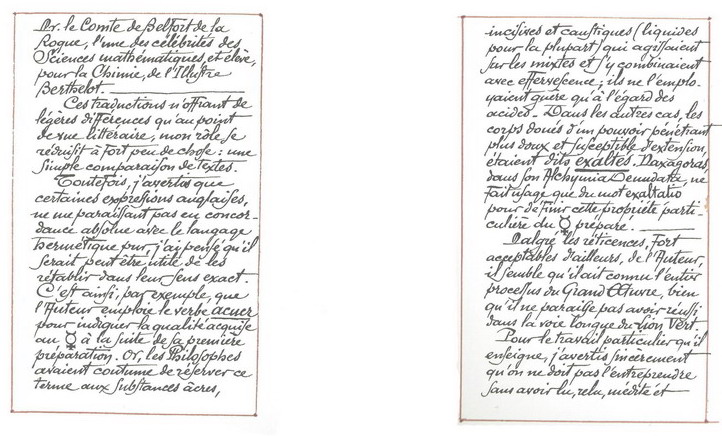 Mr. le Comte de Belfort de la
Roque, l'une des célébrités des
Sciences mathématiques, et élève,
pour la Chimie, de l'Illustre
Berthelot.
Ces traductions n'offrant de
légères différences qu'au point
de vue littéraire, mon rôle se
réduisit à fort peu de chose : une
simple comparaison de textes.
Toutefois, j'avertis que
certaines expressions anglaises,
ne me paraissant pas en concor-
dance absolue avec le langage
hermétique pur, j'ai pensé qu'il
serait peut être utile de les
rétablir dans leur sens exact.
C'est ainsi, par exemple, que
l'Auteur emploie le verbe acuer
pour indiquer la qualité acquise
au ☿ à la suite de sa première
préparation. Or, les Philosophes
avaient coutume de réserver ce
terme aux substances âcres,
incisives et caustiques (liquides
pour la plupart) qui agissaient
sur les mixtes et s'y combinaient
avec effervescence ; ils ne l'emplo-
yaient guère qu'à l'égard des
acides. - Dans les autres cas, les
corps doués d'un pouvoir pénétrant
plus doux et susceptible d'extension,
étaient dits exaltés. Naxagoras,
dans son Alchymia Denudata ne
fait usage que du mot exaltatio
pour définir cette propriété parti-
culière du ☿ préparé.
Malgré les réticences, fort
acceptables d'ailleurs, de l'Auteur,
il semble qu'il ait connu l'entier
processus du Grand Œuvre, bien
qu'il ne paraisse pas avoir réussi
dans la voie longue du Lion Vert.
Pour le travail particulier qu'il
enseigne, j'avertis sincèrement
qu'on ne doit pas l'entreprendre
sans avoir lu, relu, médité et